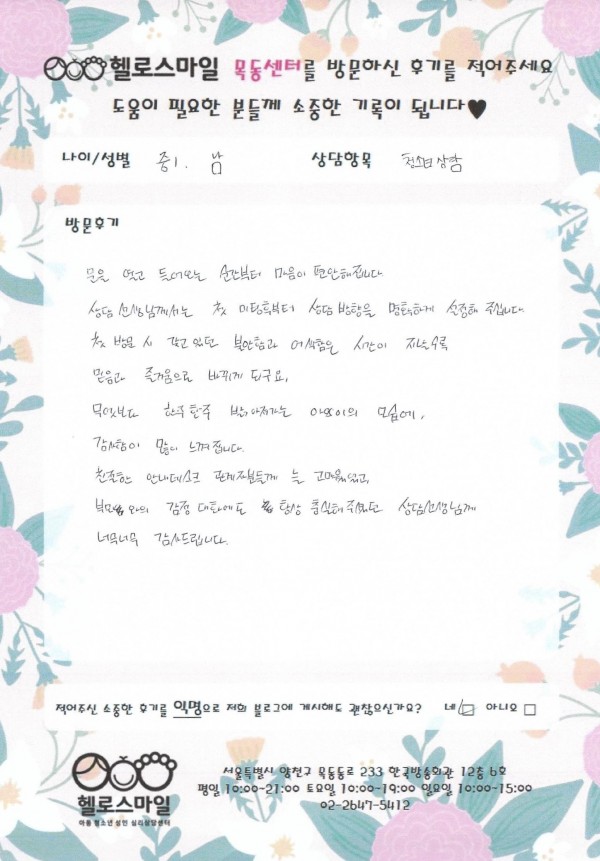 헬로스마일 목동센터를 방문하신 후기를 적어주세요
도움이 필요한 분들께 소중한 기록이 됩니다♥
나이/성별 중1. 남 상담항목 청소년 상담
방문후기
문을 열고 들어오는 순간부터 마음이 편안해집니다
상담 선생님께서는 첫 미팅때부터 상담 방향을 명확하게 설정해 주십니다.
첫 방문 시 갖고 있던 불안함과 어색함은 시간이 지날수록
믿음과 즐거움으로 바뀌게 되구요,
무엇보다 한주 한주 밝아져가는 아이의 모습에,
감사함이 많이 느껴집니다.
친절한 안내데스크 관계자분들께 늘 고마웠었고,
부모님 와의 감정 대화에도 항상 충실해주셨던 상담선생님께
너무너무 감사드립니다.
적어주신 소중한 후기를 익명으로 저희 블로그에 게시해도 괜찮으신가요? 네 ☑ 아니오 □
헬로스마일
아동 청소년 성인 심리상담센터
서울특별시 양천구 목동동로 233 한국방송회관 12층 6호
평일 10:00~21:00 토요일 10:00~19:00 일요일 10:00~15:00
02-2647-5412